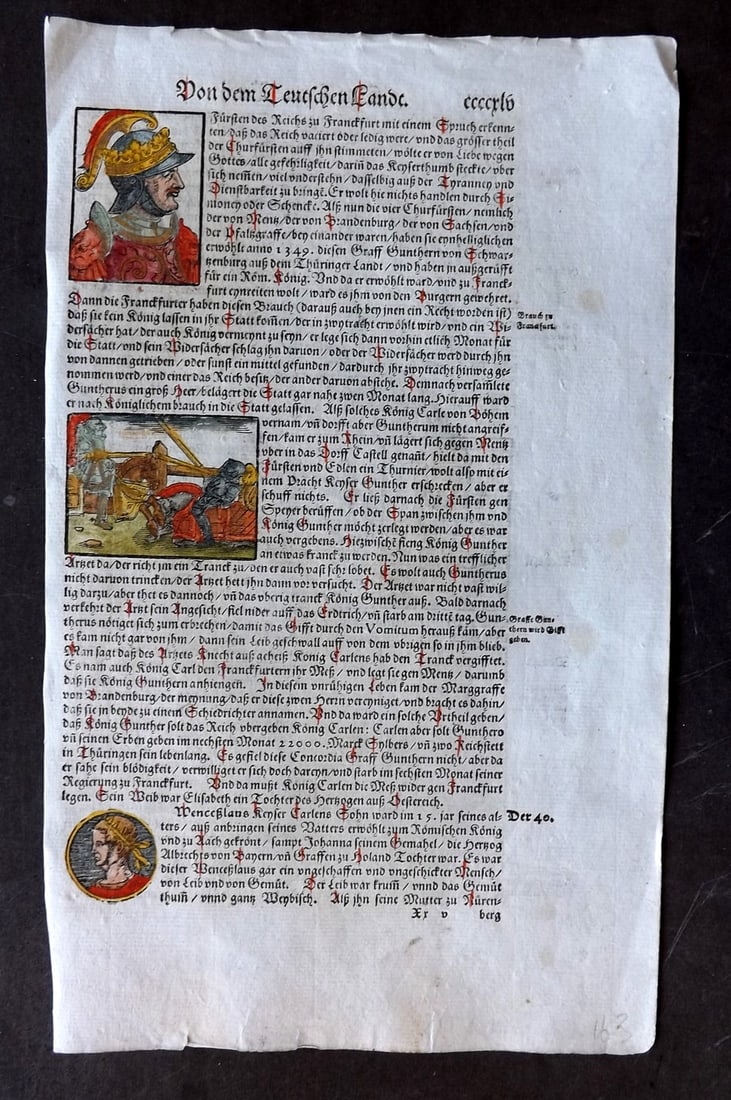 Von dem Teutschen Lande. ccccxlv
Fürsten des Reichs zu Franckfurt mit einem Spruch erkenn-
ten/daß das Reich vaciert oder ledig were/vnd das grösser theil
der Churfürsten auff jhn stimmeten/wölte er von Liebe wegen
Gottes/alle gefehrligkeit/darin̄ das Keyserthumb steckte/vber
sich nem̄en/viel vnderstehn/dasselbig auß der Tyranney vnd
Dienstbarkeit zu bringē. Er wolt hie nichts handlen durch Si-
money oder Schencke. Alß nun die vier Churfürsten/nemlich
der von Mentz/der von Brandenburg/der von Sachsen/vnd
der Pfaltzgraffe/bey einander waren/haben sie eynhelliglichen
erwöhlt anno 1349. diesen Graff Gunthern von Schwar-
tzenburg auß dem Thüringer Landt/vnd haben jn außgerüfft
für ein Röm. König. Vnd da er erwöhlt ward/vnd zu Franck-
furt eynreiten wolt/ward es jhm von den Burgern gewehret.
Dann die Franckfurter haben diesen Brauch (darauß auch bey jnen ein Recht worden ist)
daß sie kein König lassen in jhr Statt kom̄en/der in zwytracht erwöhlt wird/vnd ein Wi-
dersächer hat/der auch König vermeynt zu seyn/er lege sich dann vorhin etlich Monat für
die Statt/vnd sein Widersächer schlag jhn daruon/oder der Widersächer werd durch jhn
von dannen getrieben/oder sunst ein mittel gefunden/dardurch jhr zwytracht hinweg ge-
nommen werd/vnd einer das Reich besitz/der ander daruon abstehe. Demnach versam̄lete
Guntherus ein groß Heer/belägert die Statt gar nahe zwen Monat lang. Hierauff ward
er nach Königlichem brauch in die Statt gelassen. Alß solches König Carle von Böhem
Brauch zu
Franckfurt.
vernam/vn̄ dorfft aber Guntherum nicht angreif-
fen/kam er zum Rhein/vn̄ lägert sich gegen Mentz
vber in das Dorff Castell genan̄t/hielt da mit den
Fürsten vnd Edlen ein Thurnier/wolt also mit ei-
nem Pracht Keyser Gunther erschrecken/aber er
schuff nichts. Er ließ darnach die Fürsten gen
Speyer berüffen/ob der Span zwischen jhm vnd
König Gunther möcht zerlegt werden/aber es war
auch vergebens. Hiezwischē fieng König Gunther
an etwas kranck zu werden. Nun was ein trefflicher
Artzet da/der richt jm ein Tranck zu/den er auch vast sehr lobet. Es wolt auch Guntherus
nicht daruon trincken/der Artzet hett jhn dann vor versucht. Der Artzet war nicht vast wil-
lig darzu/aber thet es dannoch/vn̄ das vberig tranck König Gunther auß. Bald darnach
verkehrt der Artzt sein Angesicht/fiel nider auff das Erdtrich/vn̄ starb am dritte tag. Gun-
therus nötiget sich zum erbrechen/damit das Gifft durch den Vomitum herauß käm/aber
es kam nicht gar von jhm/dann sein Leib geschwall auff von dem vbrigen so in jhm blieb.
Graffe Gun-
thern wird Gifft
geben.
Man sagt daß des Artzets Knecht auß geheiß König Carlens hab den Tranck vergifftet.
Es nam auch König Carl den Franckfurtern jhr Meß/vnd legt sie gen Mentz/darumb
daß sie König Gunthern anhiengen. In diesem vnrühigen Leben kam der Marggraffe
von Brandenburg/der meynung/daß er diese zwen Herrn vereyniget/vnd bracht es dahin/
daß sie jn beyde zu einem Schiedrichter annamen. Vnd da ward ein solche Vrtheil geben/
daß König Gunther solt das Reich vbergeben König Carlen: Carlen aber solt Gunthero
vn̄ seinen Erben geben im nechsten Monat 22000. Marck Sylbers/vn̄ zwo Reichstett
in Thüringen sein lebenlang. Es gefiel diese Concordia Graff Gunthern nicht/aber da
er sahe sein blödigkeit/verwilliget er sich doch dareyn/vnd starb im sechsten Monat seiner
Regierung zu Franckfurt. Vnd da mußt König Carlen die Meß wider gen Franckfurt
legen. Sein Weib war Elisabeth ein Tochter des Hertzogen auß Oesterreich.
Wenceßlaus Keyser Carlens Sohn ward im 15. jar seines al-
ters/auß anbringen seines Vatters erwöhlt zum Römischen König
vnd zu Aach gekrönt/sampt Johanna seinem Gemahel/die Hertzog
Albrechts von Bayern/vn̄ Graffen zu Holand Tochter war. Es war
dieser Wenceßlaus gar ein vngeschaffen vnd vngeschickter Mensch/
von Leib vnd von Gemüt. Der Leib war krum̄/vnnd das Gemüt
thum̄/vnnd gantz Weybisch. Alß jhn seine Mutter zu Nüren-
Der 40.
Xx v berg
163